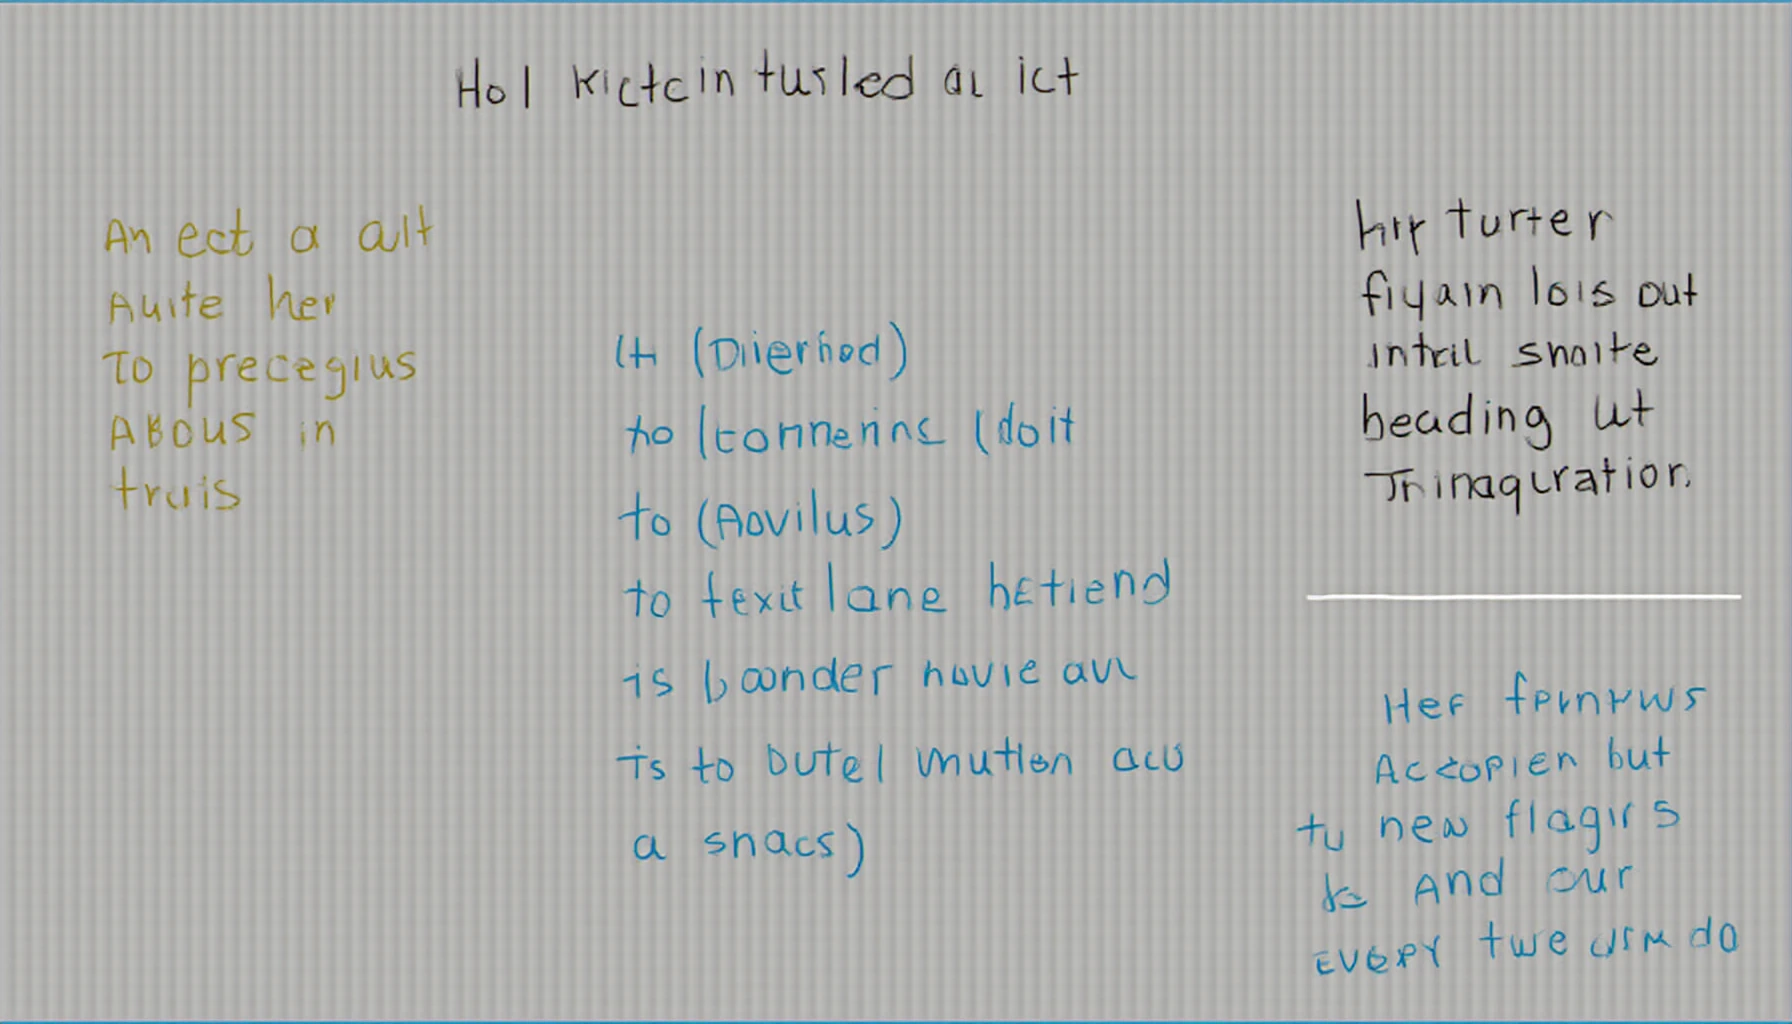 Hol kictcin tusled al ict
An ect a alt
Auite her
To precegius
ABOUS in
truis
to (Aovilus)
to texit lane hetiend
is boonder novie avl
is to butel mutlon acu
a snacs)
turter
fiyain lois out
intril snoite
beading ut
Trinaquration.
Her
Accopien but
tu new flagirs
And our
EVERY twe do